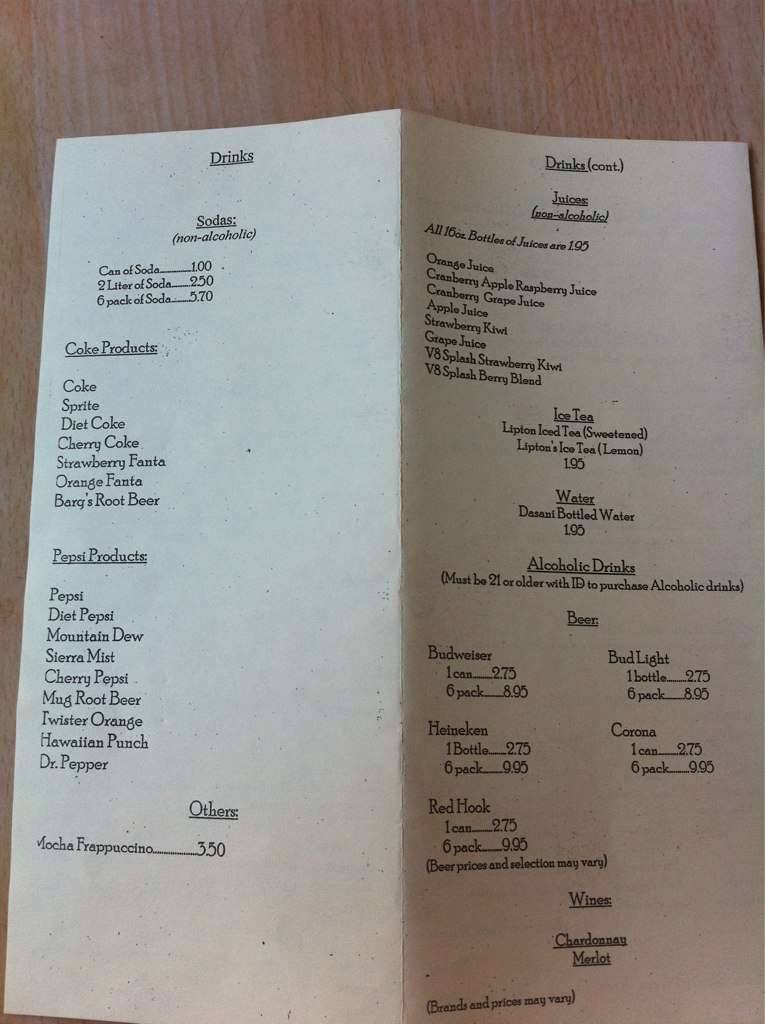 Drinks
Sodas:
(non-alcoholic)
Can of Soda..............1.00
2 Liter of Soda........2.50
6 pack of Soda........5.70
Coke Products:
Coke
Sprite
Diet Coke
Cherry Coke
Strawberry Fanta
Orange Fanta
Barq's Root Beer
Pepsi Products:
Pepsi
Diet Pepsi
Mountain Dew
Sierra Mist
Cherry Pepsi
Mug Root Beer
Twister Orange
Hawaiian Punch
Dr. Pepper
Others:
Mocha Frappuccino....................3.50
Drinks (cont.)
Juices:
(non-alcoholic)
All 16oz. Bottles of Juices are 1.95
Orange Juice
Cranberry Apple Raspberry Juice
Cranberry Grape Juice
Apple Juice
Strawberry Kiwi
Grape Juice
V8 Splash Strawberry Kiwi
V8 Splash Berry Blend
Ice Tea
Lipton Iced Tea (Sweetened)
Lipton's Ice Tea (Lemon)
1.95
Water
Dasani Bottled Water
1.95
Alcoholic Drinks
(Must be 21 or older with ID to purchase Alcoholic drinks)
Beer:
Budweiser
1 can.........2.75
6 pack.........8.95
Bud Light
1 bottle.........2.75
6 pack.........8.95
Heineken
1 Bottle........2.75
6 pack.........9.95
Corona
1 can.........2.75
6 pack.........9.95
Red Hook
1 can.........2.75
6 pack.........9.95
(Beer prices and selection may vary)
Wines:
Chardonnay
Merlot
(Brands and prices may vary)